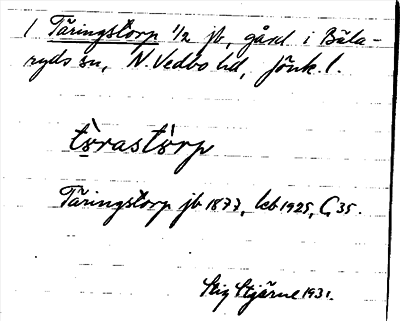 1 Täringstorp 1/2 jb, gård i Bäla-
ryds sn, N. Vedbo hd, Jönk. l.
tò̤rastò̤rp
Täringstorp jb 1877, leb 1925, C, 35.
Stig Stjärne 1931.